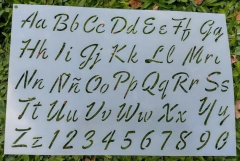 Aa Bb Cc Dd Ee Ff Gg
Hh Ii Jj Kk Ll Mm
Nn Ññ Oo Pp Qq Rr Ss
Tt Uu Vv Ww Xx Yy
Zz 1 2 3 4 5 6 7 8 9 0